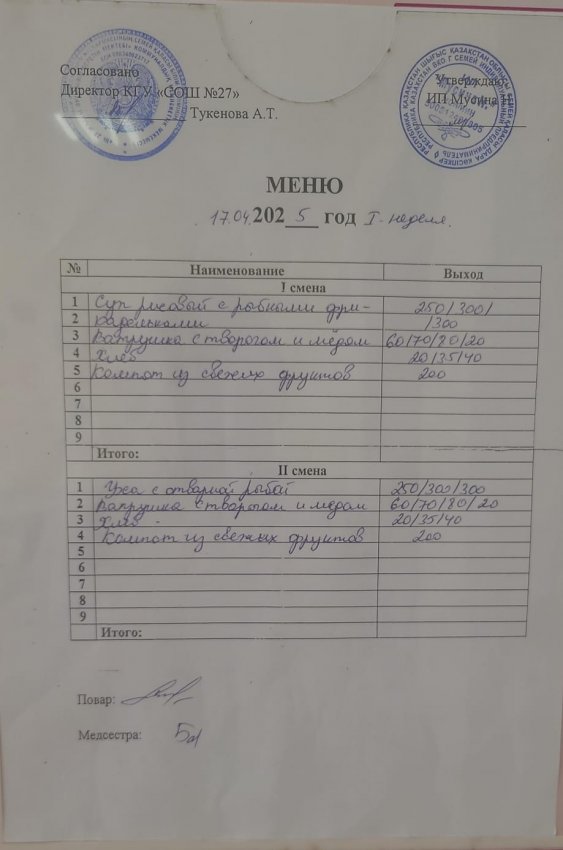 Согласовано
Директор КГУ «СОШ №27»
Тукенова А.Т.
Утверждаю
ИП Мусина
МЕНЮ
17.04.2025 год I-неделя.
№ Наименование Выход
I смена
1 Суп рисовый с рыбными фри- 250/300/
2 кадельками /300
3 Ватрушка с творогом и мёдом 60/70/80/20
4 Хлеб 20/35/40
5 Компот из свежих фруктов 200
6
7
8
9
Итого:
II смена
1 Уха с отварной рыбой 250/300/300
2 Ватрушка с творогом и мёдом 60/70/80/20
3 Хлеб - 20/35/40
4 Компот из свежых фруктов 200
5
6
7
8
9
Итого:
Повар:
Медсестра: